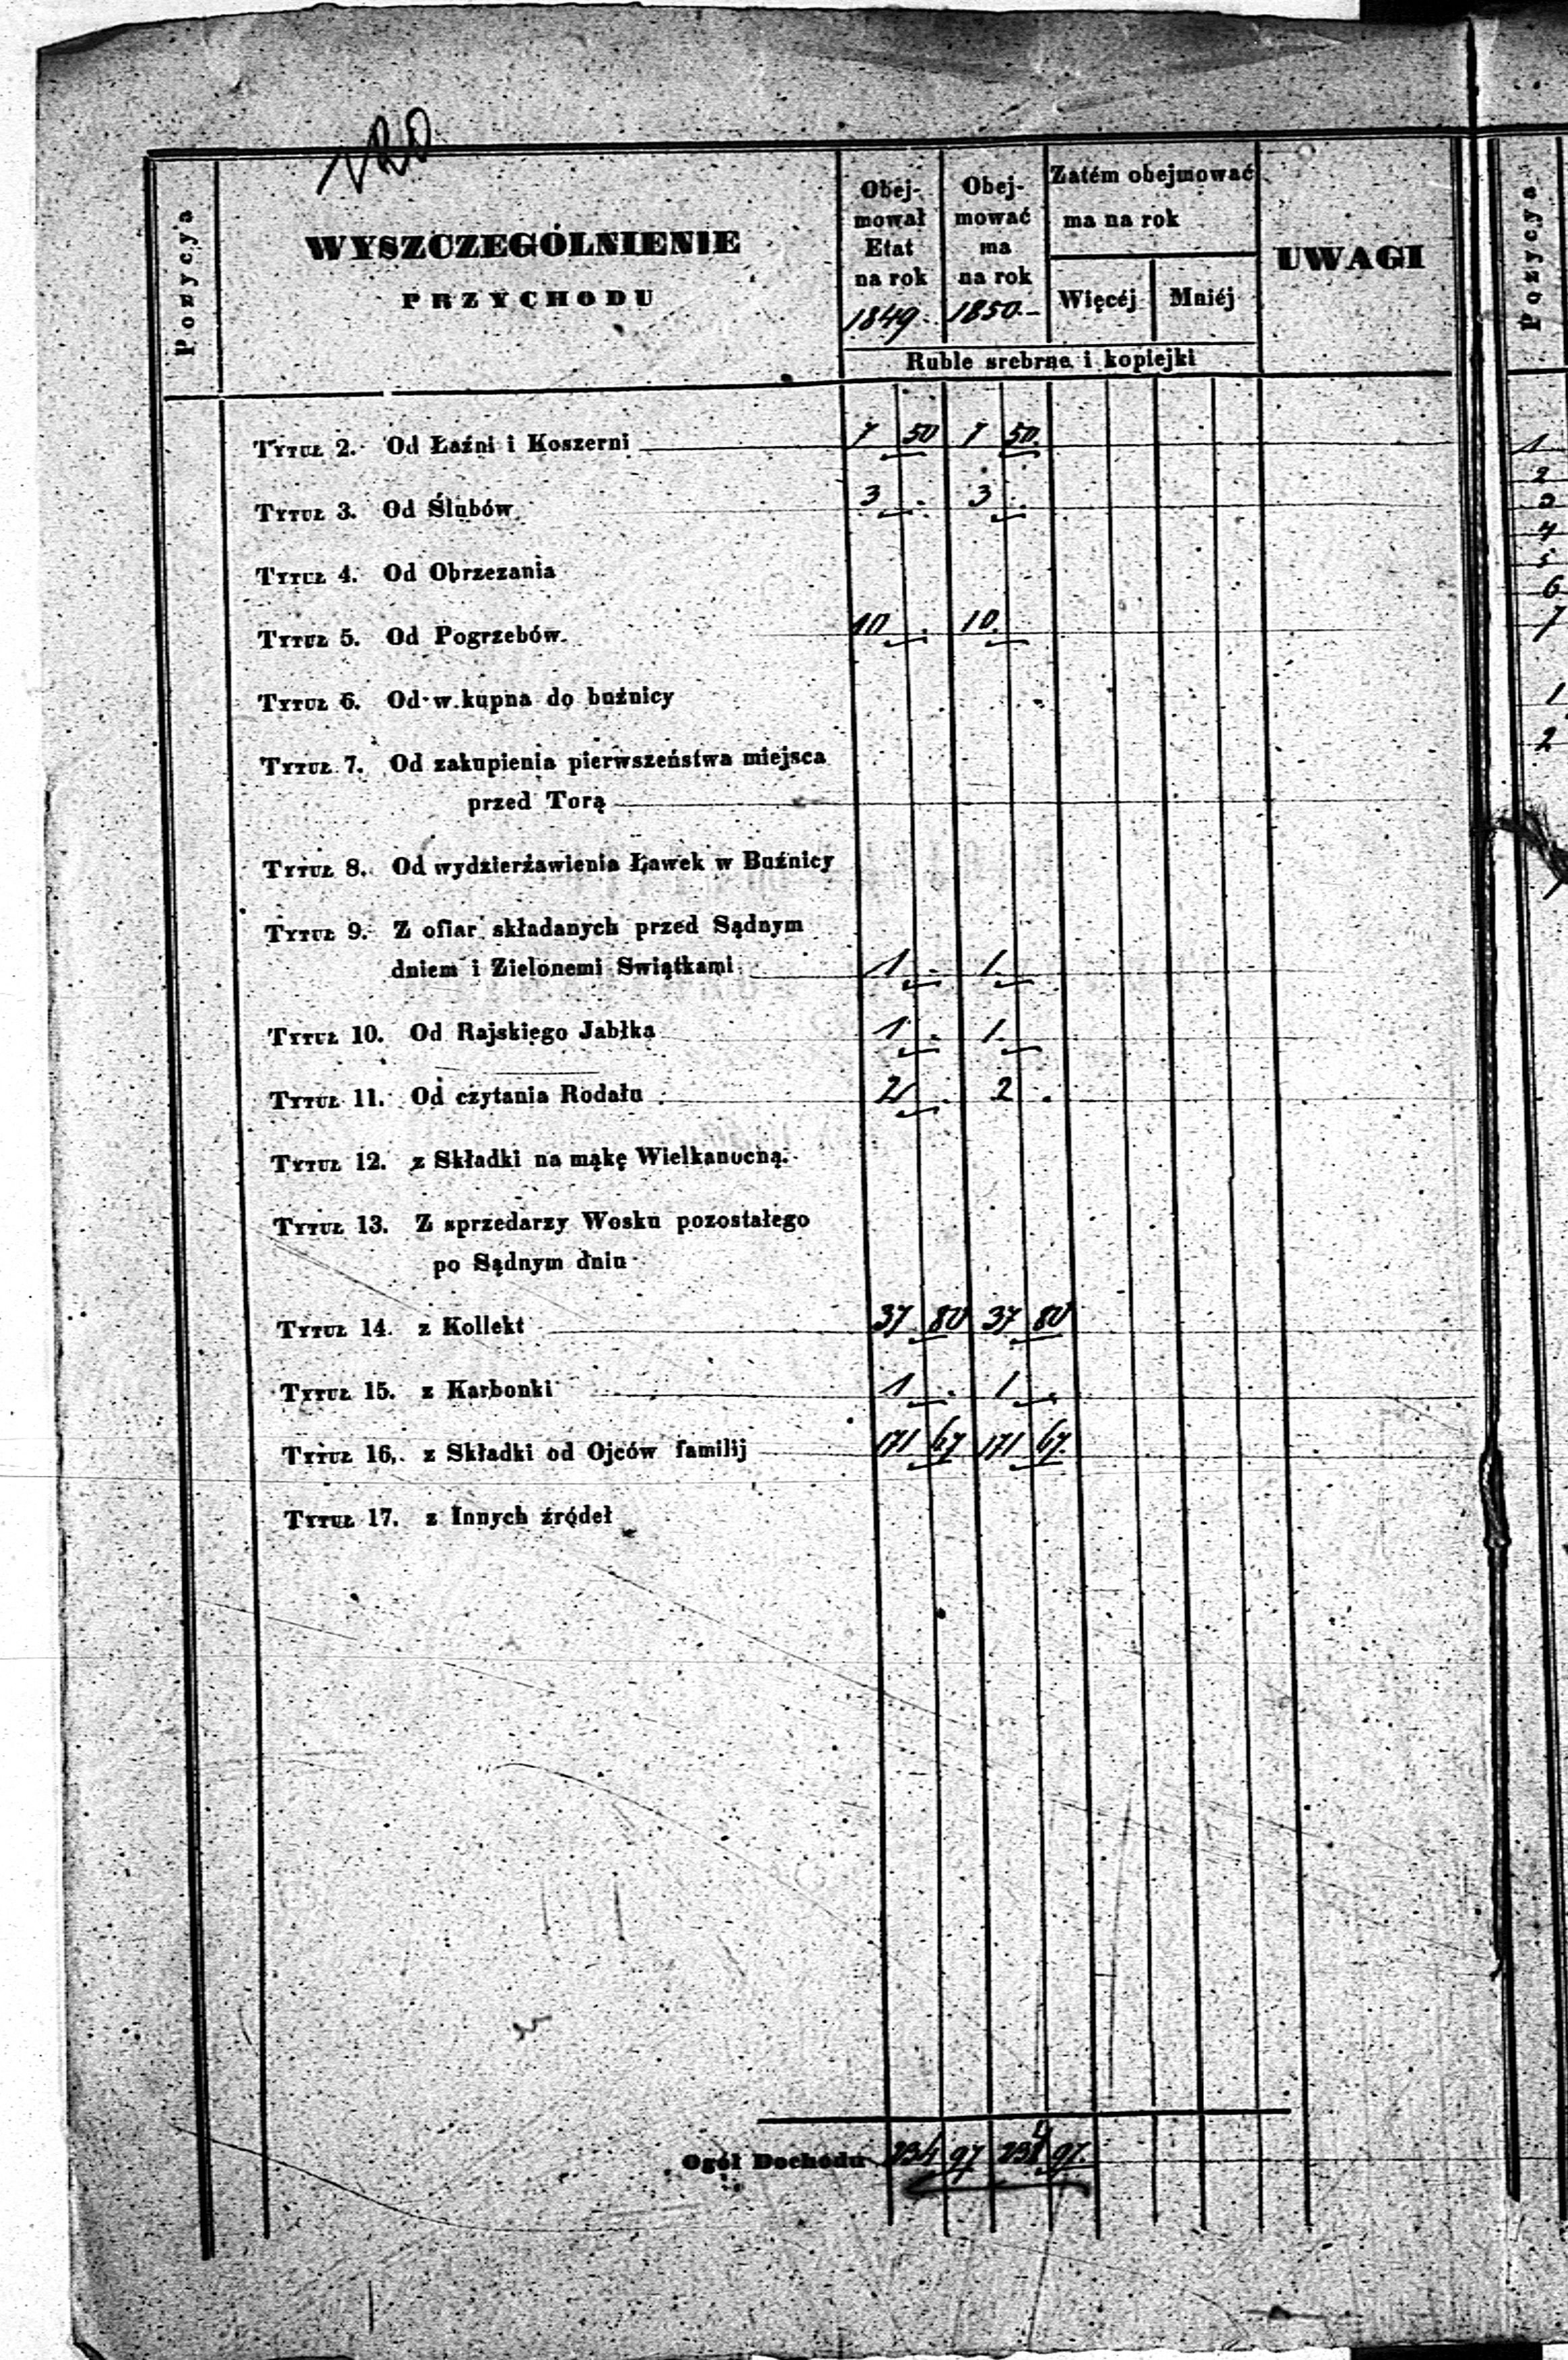 120
Pozycya
WYSZCZEGÓLNIENIE
PRZYCHODU
Obej-
mował
Etat
na rok
1849.
Obej-
mować
ma
na rok
1850.–
Zatém obejmować
ma na rok
Więcéj
Mniéj
UWAGI
Ruble srebrne i kopiejki
Tytuł 2. Od Łaźni i Koszerni 7 50 7 50.
Tytuł 3. Od Ślubów 3 . 3 .
Tytuł 4. Od Obrzezania
Tytuł 5. Od Pogrzebów. 10 . 10.
Tytuł 6. Od w.kupna do buźnicy
Tytuł 7. Od zakupienia pierwszeństwa miejsca
przed Torą
Tytuł 8. Od wydzierżawienia Ławek w Buźnicy
Tytuł 9. Z ofiar składanych przed Sądnym
dniem i Zielonemi Swiątkami 1 . 1.
Tytuł 10. Od Rajskiego Jabłka 1 . 1.
Tytuł 11. Od czytania Rodału 2 . 2 .
Tytuł 12. z Składki na mąkę Wielkanocną.
Tytuł 13. Z sprzedarzy Wosku pozostałego
po Sądnym dniu
Tytuł 14. z Kollekt 37 80 37 80
Tytuł 15. z Karbonki 1 . 1 .
Tytuł 16. z Składki od Ojców familij 171 67 171 67.
Tytuł 17. z Innych źródeł
Ogół Dochodu 234 97 234 97.
Pozycya
1
2
3
4
5
6
7
1
2